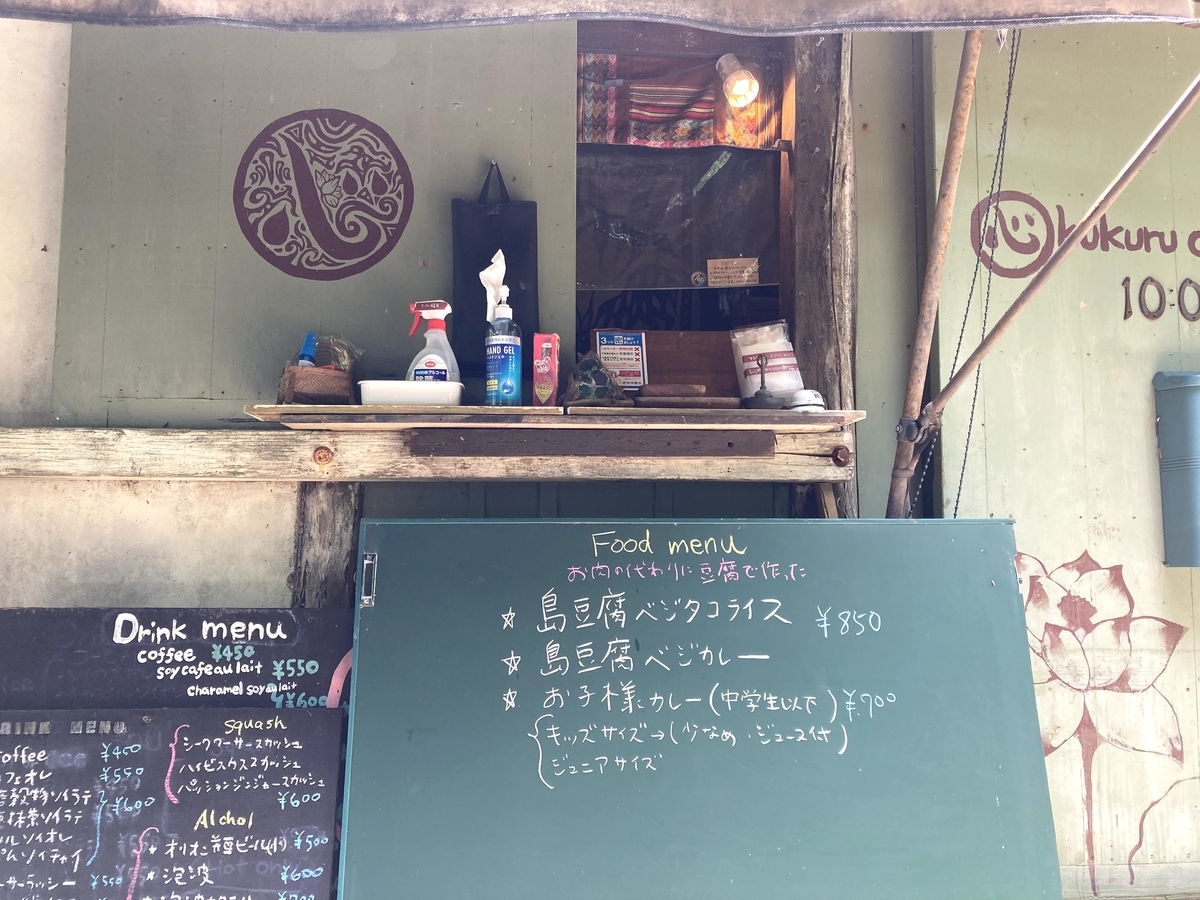 kukuru
10:0
HAND GEL
Food menu
お肉の代わりに豆腐で作った
☆ 島豆腐ベジタコライス ¥850
☆ 島豆腐ベジカレー
☆ お子様カレー(中学生以下) ¥700
キッズサイズ→(少なめ・ジュース付)
ジュニアサイズ
Drink menu
coffee ¥450
soycafeaulait ¥550
charamel soyaulait
¥600
DRINK MENU
coffee ¥450
フェオレ ¥550
穀物ソイラテ
抹茶ソイラテ ¥600
ルソイオレ
ソイチャイ
ーサーラッシー ¥550
squash
シークワーサースカッシュ
ハイビスカススカッシュ
パッションジンジャースカッシュ
¥600
Alchol
★ オリオン ビール(小) ¥500
★ 泡波 ¥600